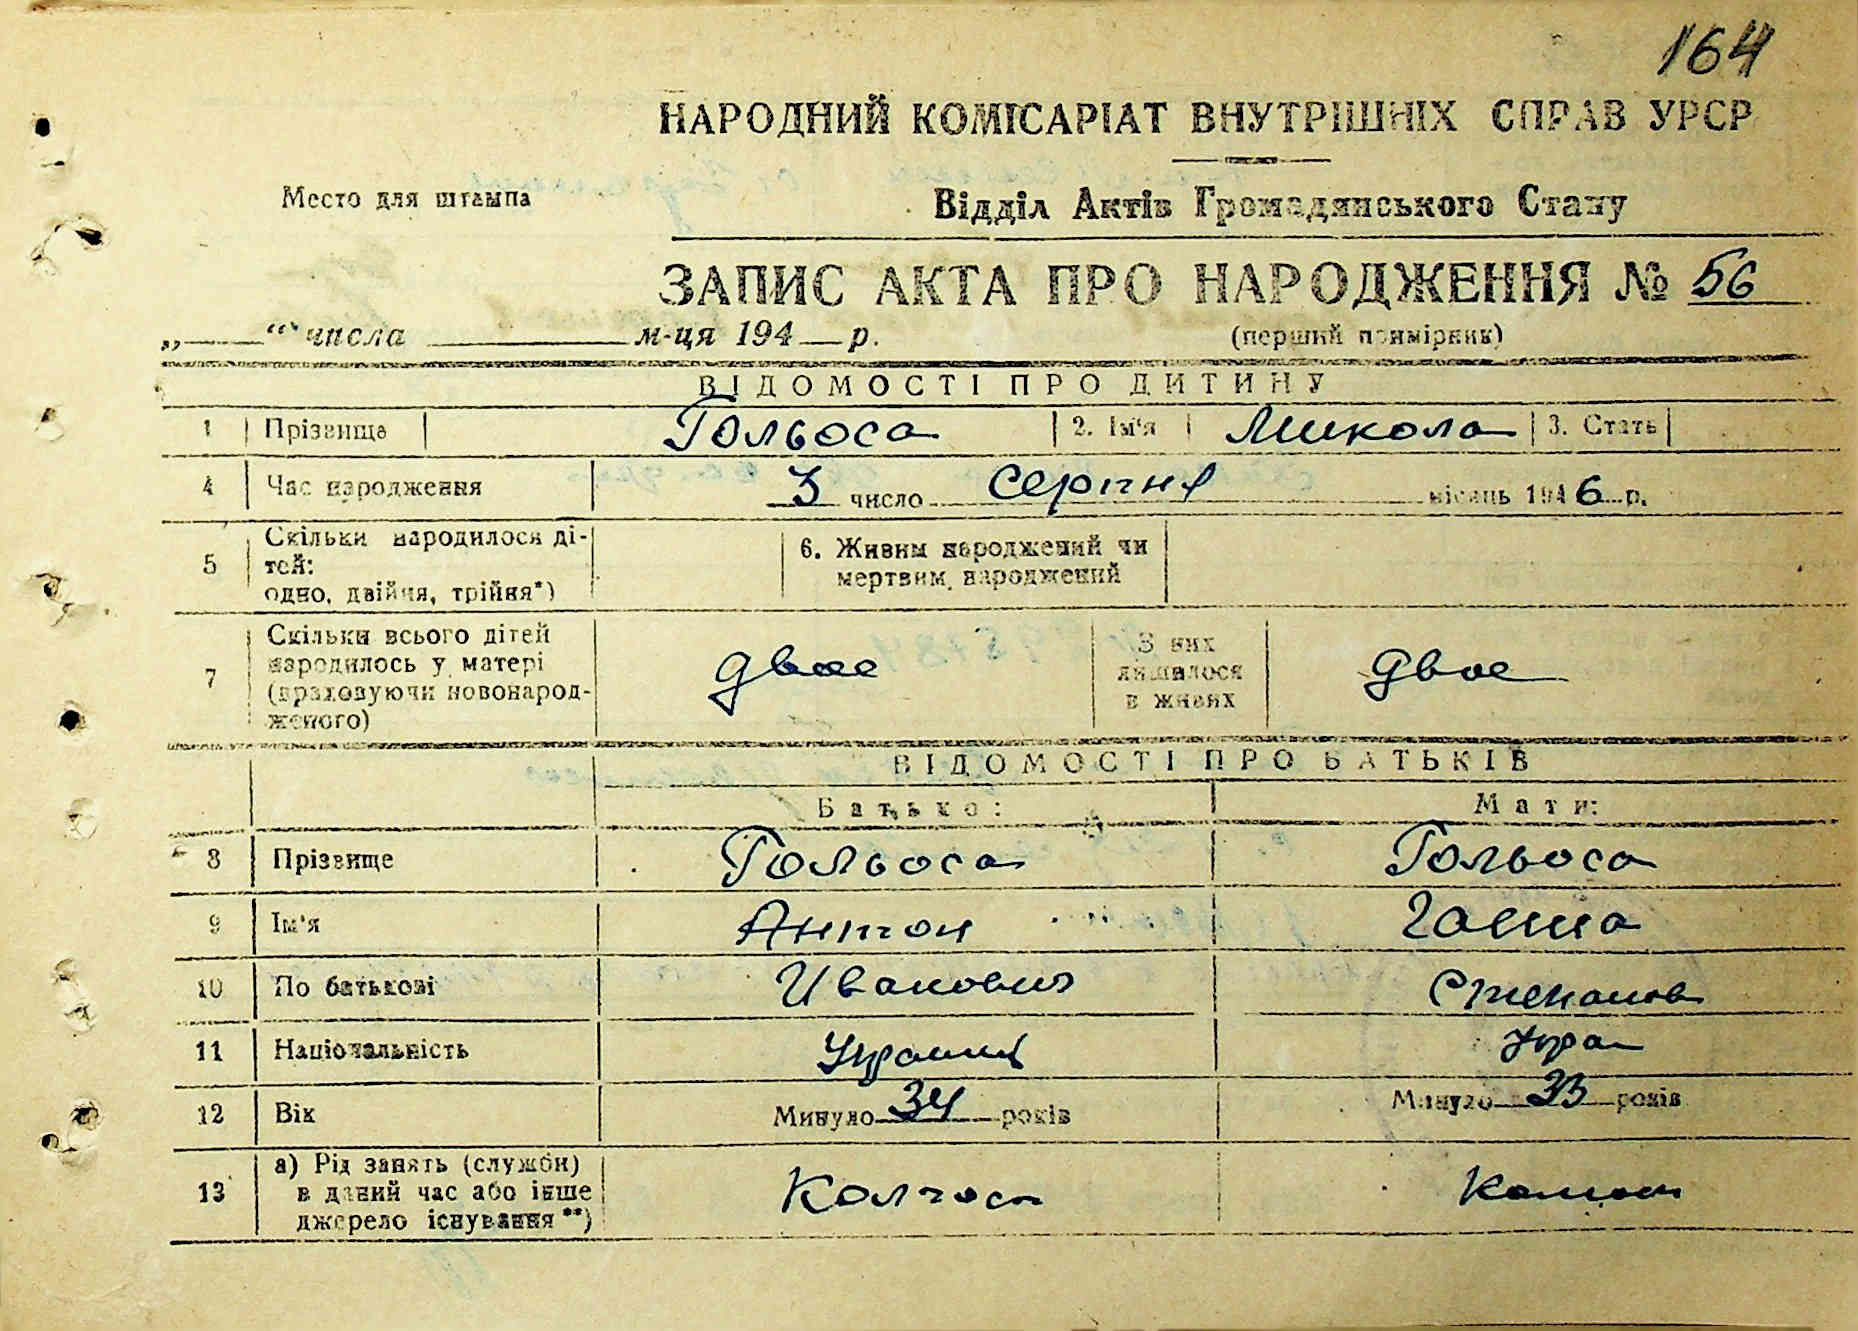 164
НАРОДНИЙ КОМІСАРІАТ ВНУТРІШНІХ СПРАВ УРСР
Место для штампа
Відділ Актів Громадянського Стану
ЗАПИС АКТА ПРО НАРОДЖЕННЯ № 56
„ “ числа м-ця 194 р.
(перший примірник)
ВІДОМОСТІ ПРО ДИТИНУ
1 Прізвище Гольоса 2. Ім'я Микола 3. Стать
4 Час народження 3 число серпня місяць 1946 р.
5 Скільки народилося ді-
тей:
одно, двійня, трійня*)
6. Живим народжений чи
мертвим народжений
7 Скільки всього дітей
народилось у матері
(враховуючи новонарод-
женого)
двое
З них
лишилося
в живих
двое
ВІДОМОСТІ ПРО БАТЬКІВ
Батько: Мати:
8 Прізвище Гольоса Гольоса
9 Ім'я Антон Ганна
10 По батькові Иванович Степанов
11 Національність Украинц Укра
12 Вік Минуло 34 років Минуло 33 років
13 а) Рід занять (служби)
в даний час або інше
джерело існування**)
Колгосп